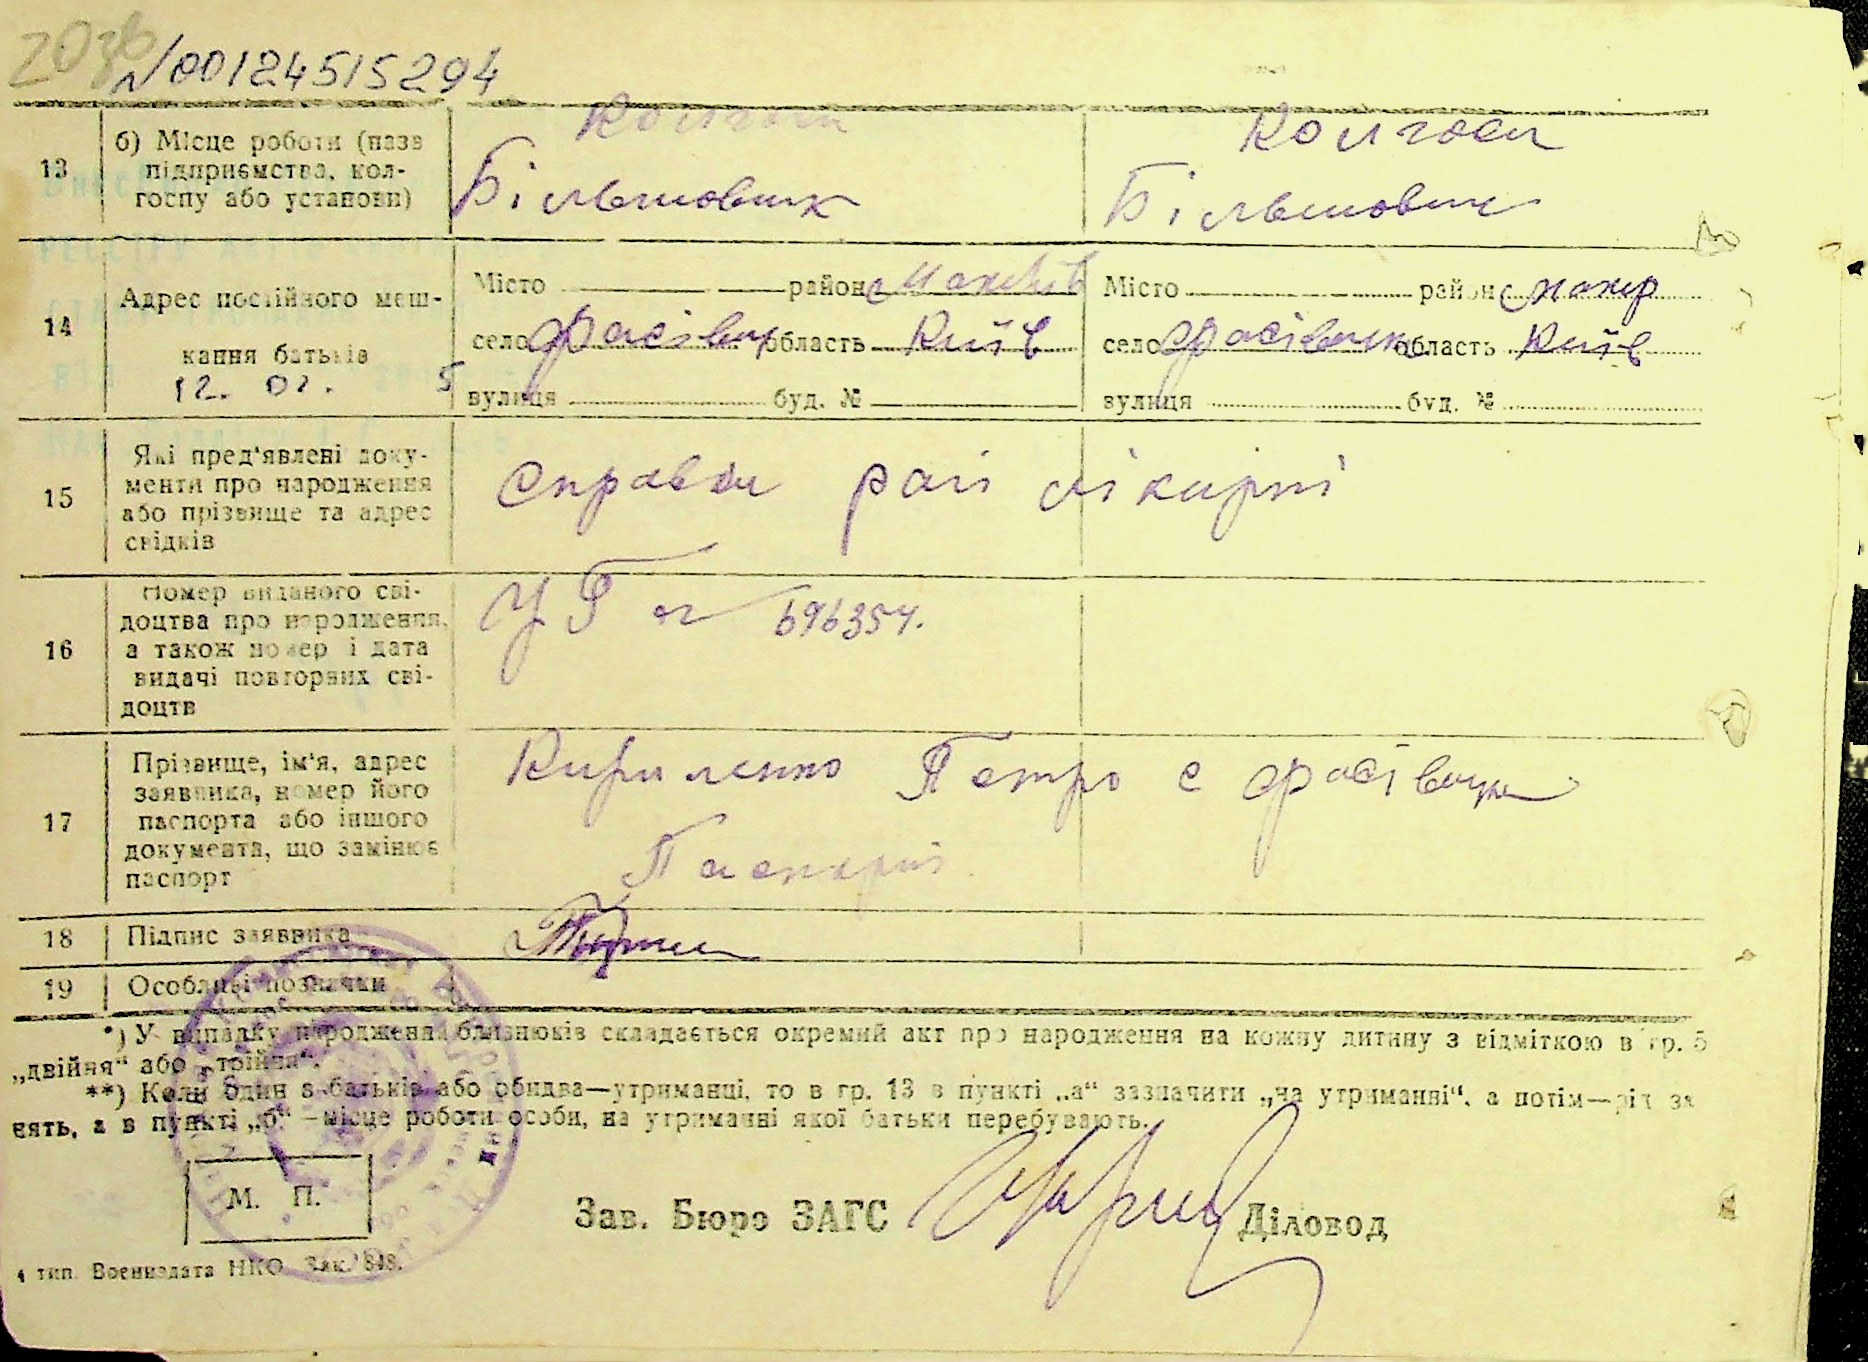 № 00124515294
13
б) Місце роботи (назв
підприємства, кол-
госпу або установи)
Колгосп
Більшовик
Колгосп
Більшовик
14
Адрес постійного меш-
кання батьків
12. 02. 5
Місто район Макарів
село Фасівочка область Київ
вулиця буд. №
Місто район Макар
село Фасівочка область Київ
вулиця буд. №
15
Які пред'явлені доку-
менти про народження
або прізвище та адрес
свідків
Справка рай лікирні
16
Номер виданого сві-
доцтва про народження,
а також номер і дата
видачі повторних сві-
доцтв
УБ № 696354.
17
Прізвище, ім'я, адрес
заявника, номер його
паспорта або іншого
документа, що замінює
паспорт
Кириленко Петро с Фасівочка
18
Підпис заявника
19
Особливі позначки
*) У випадку народження близнюків складається окремий акт про народження на кожну дитину з відміткою в гр. 5
„двійня“ або „трійня“.
**) Коли один з батьків або обидва—утриманці, то в гр. 13 в пункті „а“ зазначити „на утриманні“, а потім—рід за
нять, а в пункті „б“ —місце роботи особи, на утриманні якої батьки перебувають.
М. П.
Зав. Бюро ЗАГС
Діловод
4 тип. Воениздата НКО Зак. 848.